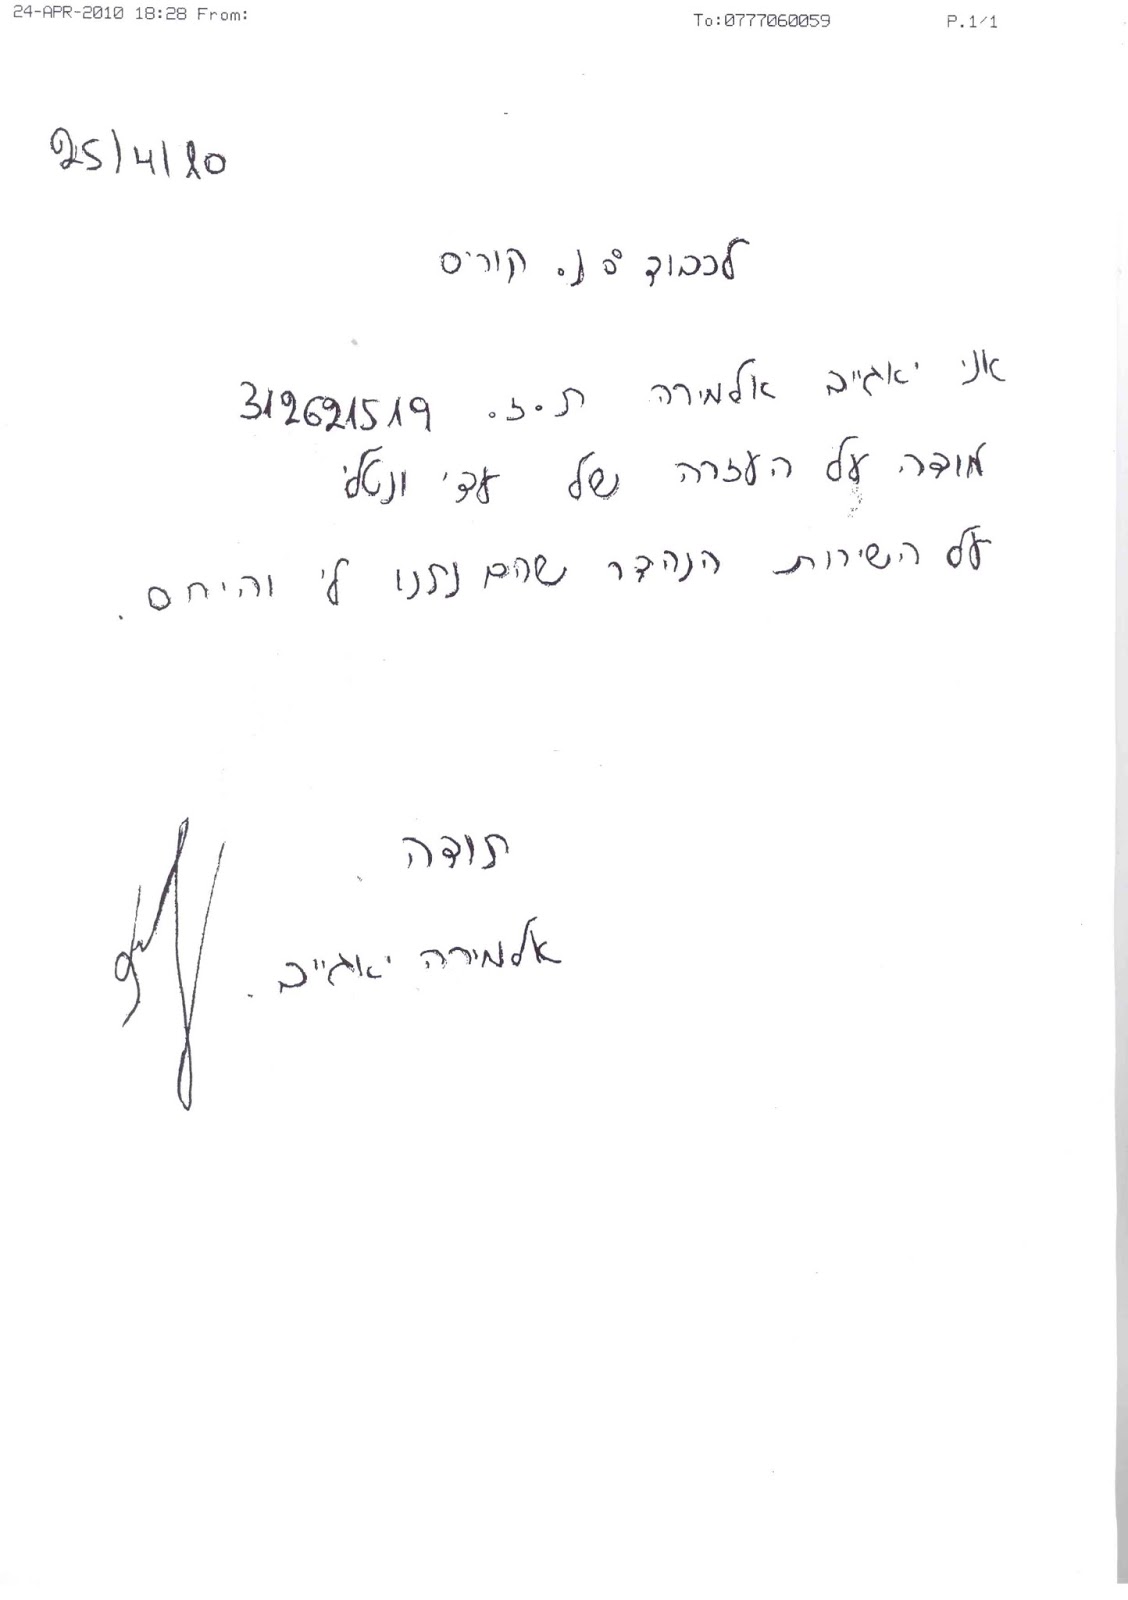 24-APR-2010 18:28 From: To:0777060059 P.1/1
25/4/10
לכבוד פ.נ. קוריס
אני יאגייב אלמירה ת.ז. 312621519
מודה על העזרה של עדי ונטלי
על השירות הנהדר שהם נתנו לי והיחס.
תודה
אלמירה יאגייב.